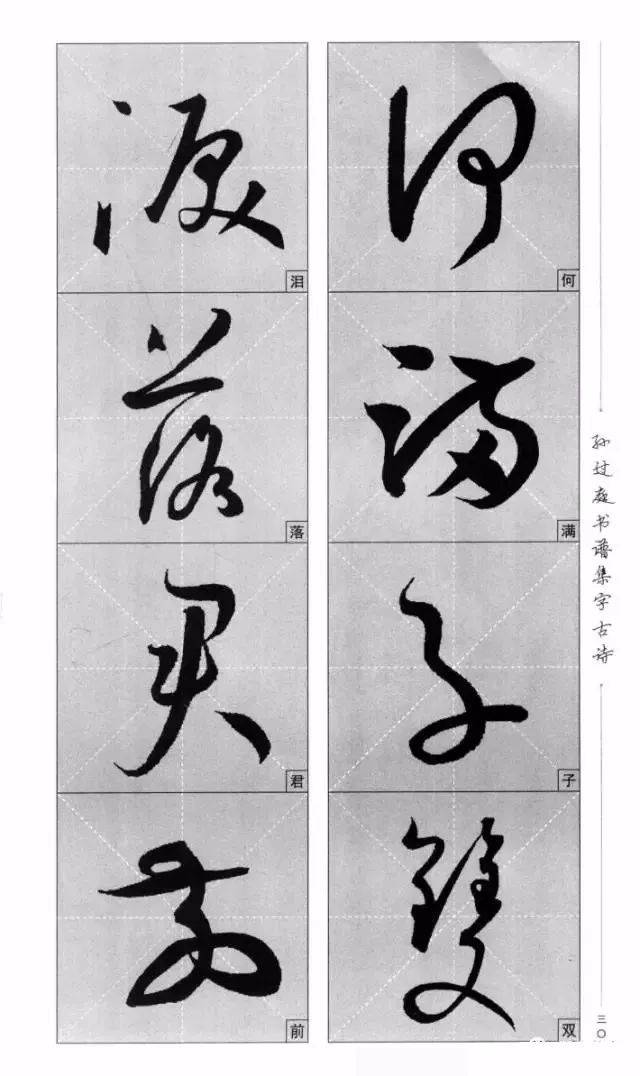 孙过庭书谱集字古诗
三〇
何
满
子
双
泪
落
君
前